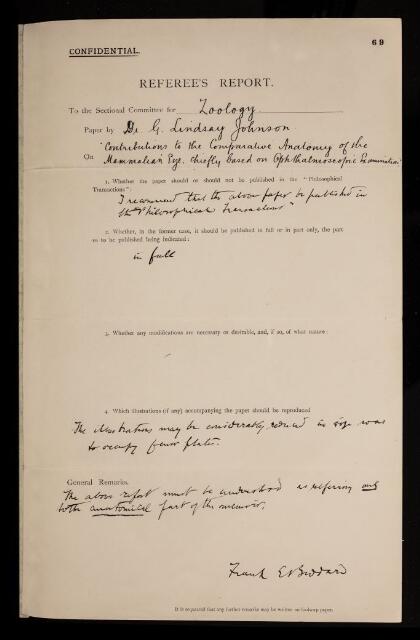 69
CONFIDENTIAL.
REFEREE'S REPORT.
To the Sectional Committee for Zoology
Paper by Dr G. Lindsay Johnson
"Contributions to the Comparative Anatomy of the
On Mammalian Eye, chiefly based on Ophthalmoscopic Examination"
1. Whether the paper should or should not be published in the "Philosophical
Transactions":
I recommend that the above paper be published in
the "Philosophical Transactions"
2. Whether, in the former case, it should be published in full or in part only, the part
or to be published being indicated:
in full
3. Whether any modifications are necessary or desirable, and, if so, of what nature:
4. Which illustrations (if any) accompanying the paper should be reproduced
The illustrations may be considerably reduced in size so as
to occupy fewer plates.
General Remarks.
The above report must be understood as referring only
to the anatomical part of the memoir.
Frank E Beddard
It is requested that any further remarks may be written on foolscap paper.